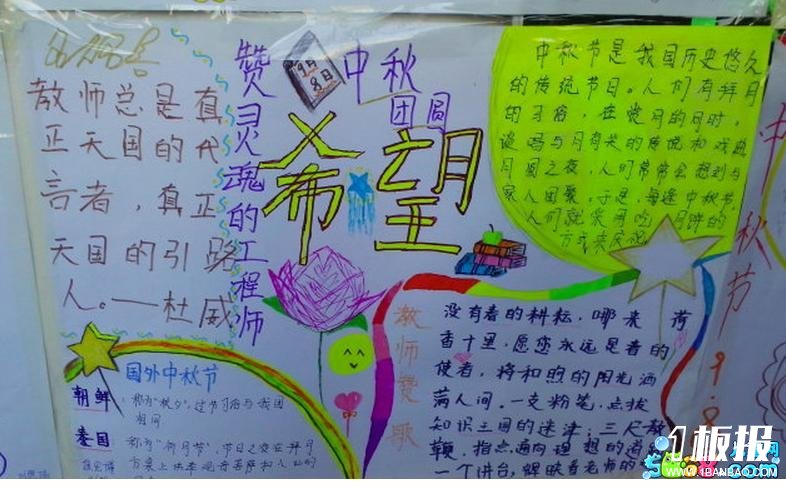 教师总是真
正天国的代
言者，真正
天国的引路
人。——杜威
赞灵魂的工程师
9月
8日
中秋
团圆
希望
中秋节是我国历史悠久
的传统节日。人们有拜月
的习俗，在赏月的同时，
谈唱与月有关的传说和戏曲
月圆之夜，人们常常会想到与
家人团聚。于是，每逢中秋节，
人们就采用吃月饼的
方式来庆祝
国外中秋节
朝鲜：称为"秋夕"，过节习俗与我国
相同
泰国：称为"祈月节"，节日之夜在拜月
教师赞歌
没有春的耕耘，哪来荷
香十里，愿您永远是春的
使者，将和煦的阳光洒
满人间。一支粉笔，点拔
知识王国的迷津；三尺教
鞭，指点通向理想的道
一个讲台，辉映着老师的
中秋节
9.8
1板报
WWW.1BANBAO.COM